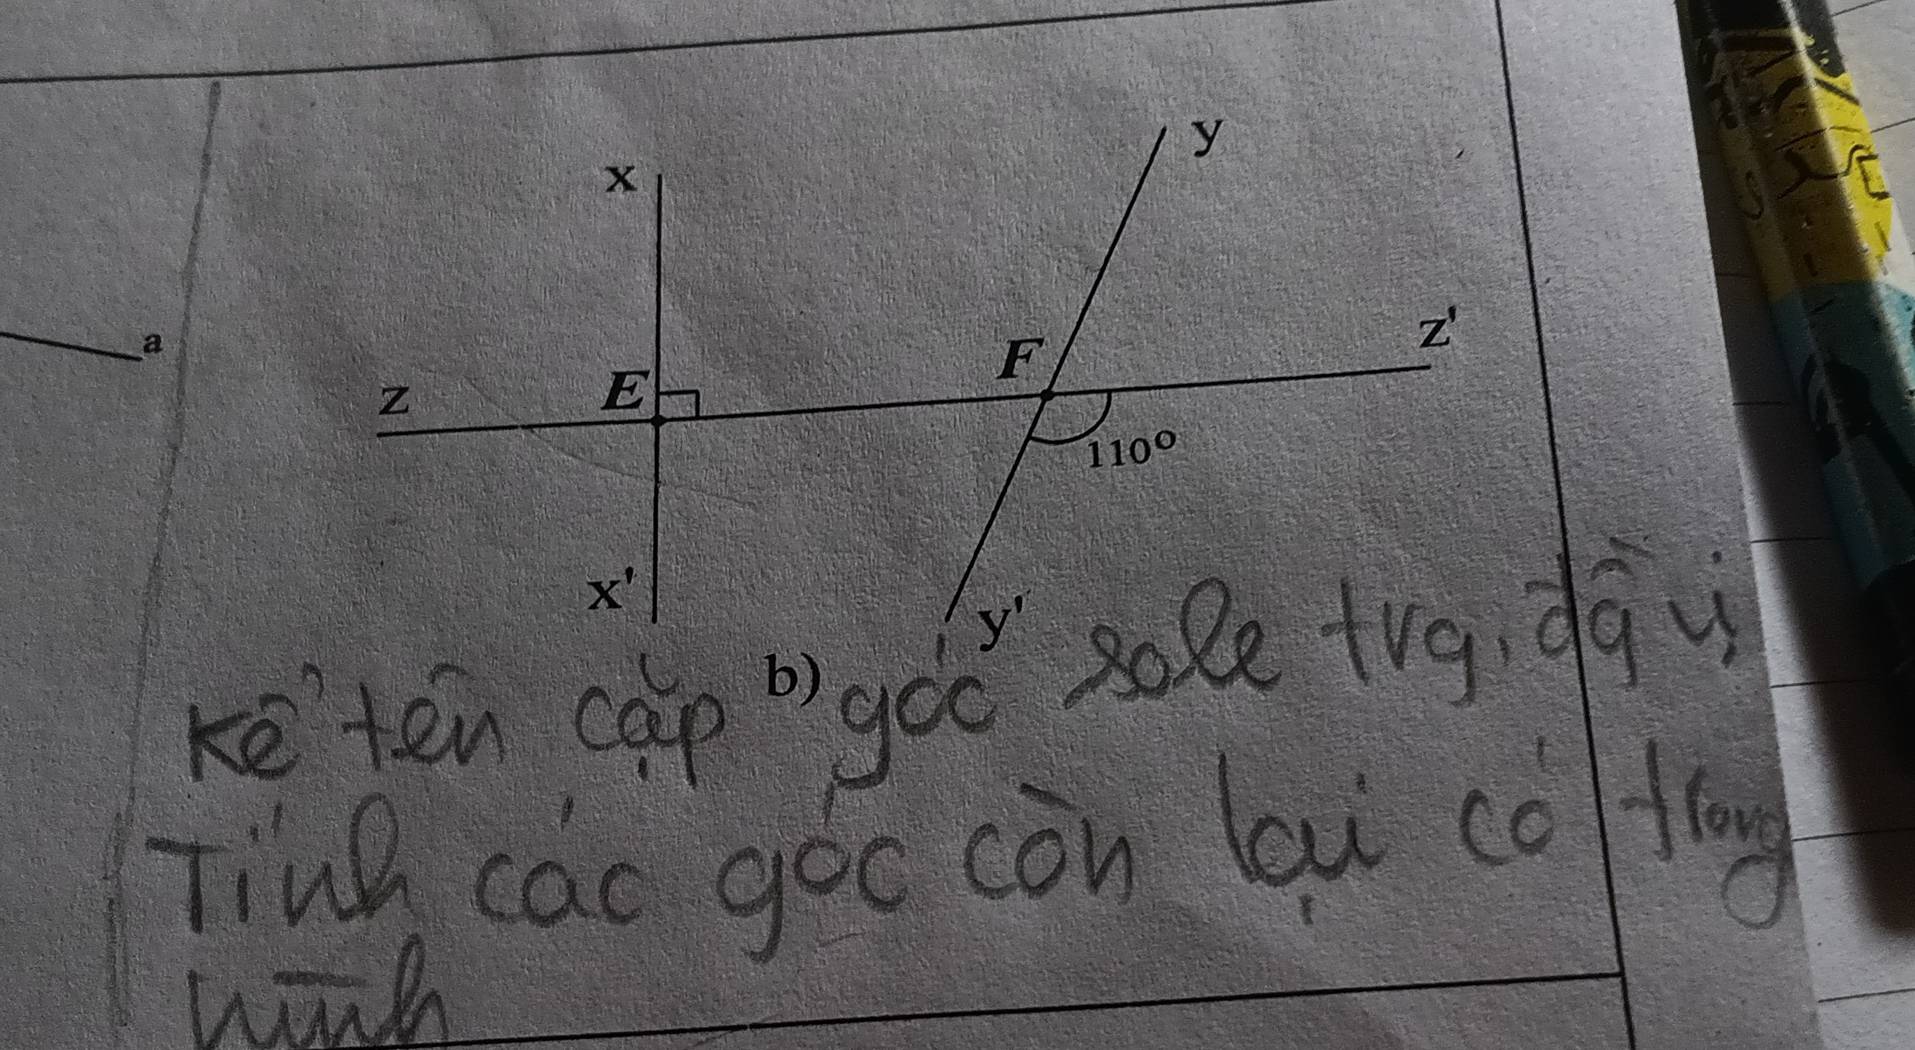 a
x
y
z
E
F
z'
110°
x'
y'
b)
Kể tên cặp góc sole trg, đg vị
Tính các góc còn lại có trong
hình